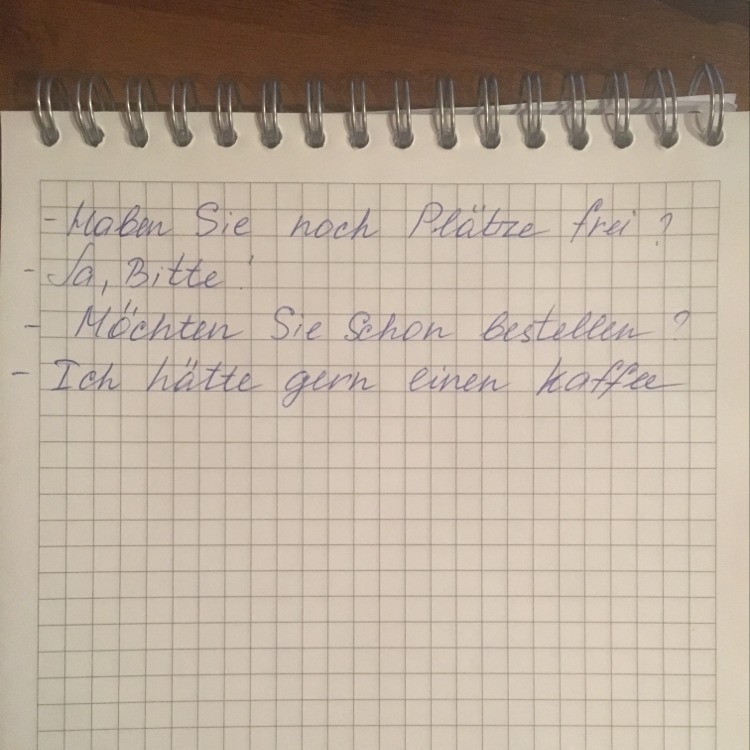 - Haben Sie noch Plätze frei?
- Ja, Bitte!
- Möchten Sie Schon bestellen?
- Ich hätte gern einen kaffee